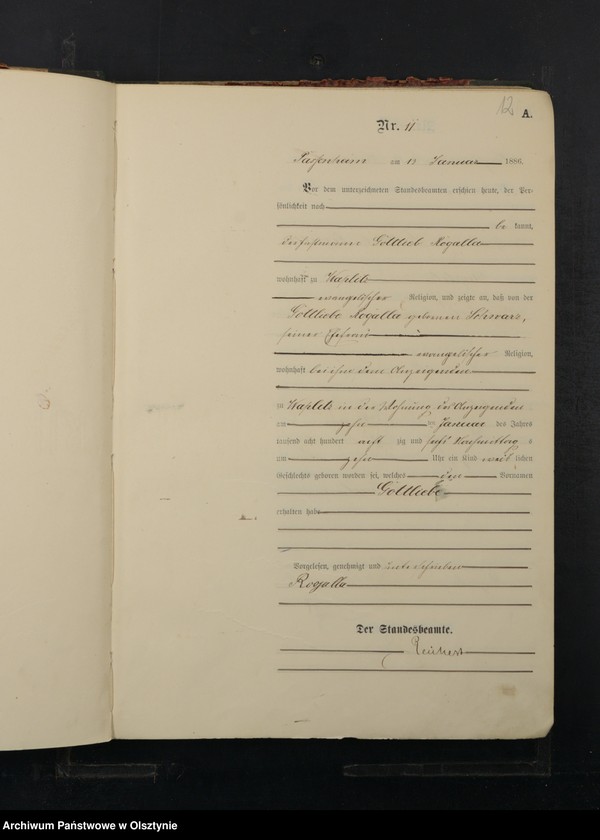 12
A.
Nr. 11
Passenheim am 13 Januar 1886.
Vor dem unterzeichneten Standesbeamten erschien heute, der Per-
sönlichkeit nach
be kannt,
Gottlieb Rogalla
wohnhaft zu
evangelischer Religion, und zeigte an, daß von der
Gottliebe Rogalla geborenen Schwarz,
seiner Ehefrau
evangelischer Religion,
wohnhaft bei ihm dem Anzeigenden
zu in der Wohnung des Anzeigenden
am zehn ten Januar des Jahres
tausend acht hundert acht zig und sechs Vormittag s
um zehn Uhr ein Kind weib lichen
Geschlechts geboren worden sei, welches den Vornamen
Gottliebe
erhalten habe
Vorgelesen, genehmigt und unterschrieben
Rogalla
Der Standesbeamte.
Archiwum Państwowe w Olsztynie